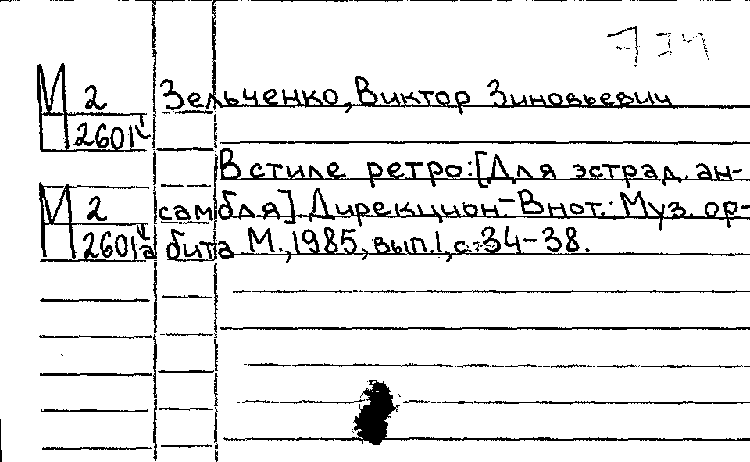 М 2 Зельченко, Виктор Зиновьевич
2601
В стиле ретро: [Для эстрад. ан-
М 2 самбля]. Дирекцион- В нот.: Муз. ор-
2601 бита М., 1985, вып. 1, с. 34-38.